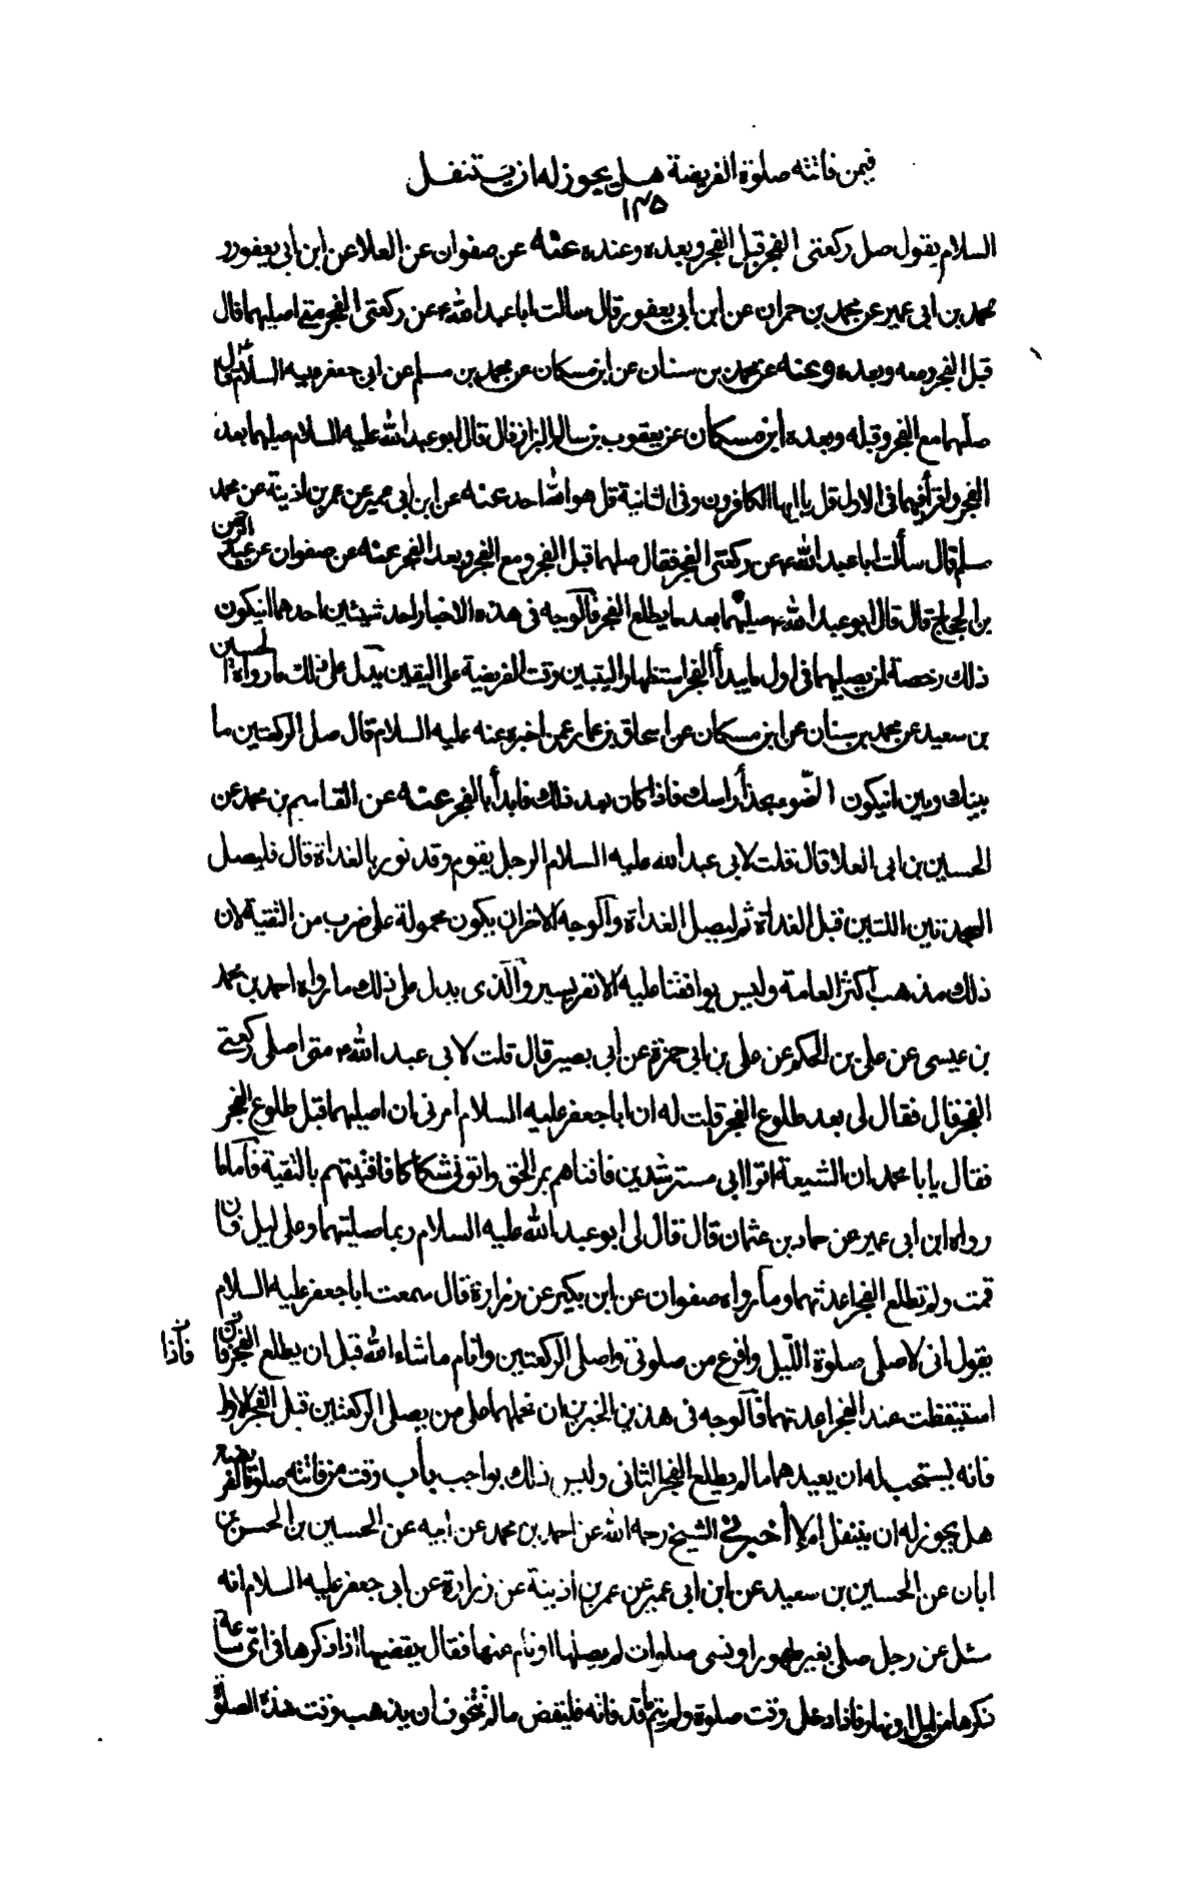 فيمن فاتته صلوة الفريضة هل يجوز له ان يتنفل
١٣٥
السلام يقول صل ركعتى الفجر قبل الفجر وبعده وعنده عنه عن صفوان عن العلا عن ابن ابى يعفور و
محمد بن ابى عمير عن محمد بن حمران عن ابن ابى يعفور قال سالت ابا عبد الله ع عن ركعتى الفجر متى اصليهما قال
قبل الفجر ومعه وبعده وعنه عن محمد بن سنان عن ابن مسكان عن محمد بن مسلم عن ابى جعفر عليه السلام قال
صلهما مع الفجر وقبله وبعده ابن مسكان عن يعقوب بن سالم البزاز قال قال ابو عبد الله عليه السلام صلهما بعد
الفجر واقرأ فيهما فى الاولى قل يا ايها الكافرون وفى الثانية قل هو الله احد عنه عن ابن ابى عمير عن عمر بن اذينة عن محمد
مسلم قال سألت ابا عبد الله ع عن ركعتى الفجر فقال صلهما قبل الفجر ومع الفجر وبعد الفجر عنه عن صفوان عن عبد الرحمن
بن الحجاج قال قال ابو عبد الله ع صليهما بعد ما يطلع الفجر فالوجه فى هذه الاخبار احد شيئين احدهما ان يكون
ذلك رخصة لمن يصليهما فى اول ما يبدأ الفجر استظهارا ليتبين وقت الفريضة على اليقين يدل على ذلك ما رواه الحسين
بن سعيد عن محمد بن سنان عن ابن مسكان عن اسحاق بن عمار عمن اخبره عنه عليه السلام قال صل الركعتين ما
بينك وبين ان يكون الضوء بحذأ راسك فاذا كان بعد ذلك فابدأ بالفجر عنه عن القاسم بن محمد عن
الحسين بن ابى العلا قال قلت لابى عبد الله عليه السلام الرجل يقوم وقد نور بالغداة قال فليصل
السجدتين اللتين قبل الغداة ثم ليصل الغداة والوجه الاخر ان يكون محمولة على ضرب من التقية لان
ذلك مذهب اكثر العامة وليس يوافقنا عليه الا نفر يسير والذى يدل على ذلك ما رواه احمد بن محمد
بن عيسى عن على بن الحكم عن على بن ابى حمزة عن ابى بصير قال قلت لابى عبد الله ع متى اصلى ركعتى
الفجر قال فقال لى بعد طلوع الفجر قلت له ان ابا جعفر عليه السلام امرنى ان اصليهما قبل طلوع الفجر
فقال يا با محمد ان الشيعة اتوا ابى مسترشدين فافتاهم بمر الحق واتونى شكاكا فافتيتهم بالتقية فاما ما
رواه ابن ابى عمير عن حماد بن عثمان قال قال لى ابو عبد الله عليه السلام ربما صليتهما وعلى ليل فان
قمت ولم تطلع الفجر اعدتهما وما رواه صفوان عن ابن بكير عن زرارة قال سمعت ابا جعفر عليه السلام
يقول انى لاصلى صلوة الليل وافرغ من صلوتى واصلى الركعتين وانام ما شاء الله قبل ان يطلع الفجر فان
فاذا
استيقظت عند الفجر اعدتهما فالوجه فى هذين الخبرين ان نحملهما على من يصلى الركعتين قبل الفجر الاول
فانه يستحب له ان يعيدهما ما لم يطلع الفجر الثانى وليس ذلك بواجب باب وقت من فاتته صلوة الفريضة
هل يجوز له ان يتنفل ام لا أخبرنى الشيخ رحمه الله عن احمد بن محمد عن ابيه عن الحسين بن الحسن بن
ابان عن الحسين بن سعيد عن ابن ابى عمير عن عمر بن اذينة عن زرارة عن ابى جعفر عليه السلام انه
سئل عن رجل صلى بغير طهور او نسى صلوات لم يصلها او نام عنها فقال يقضيها اذا ذكرها فى اى ساعة
ذكرها من ليل او نهار فاذا دخل وقت صلوة ولم يتم ما قد فاته فليقض ما لم يتخوف ان يذهب وقت هذه الصلوة